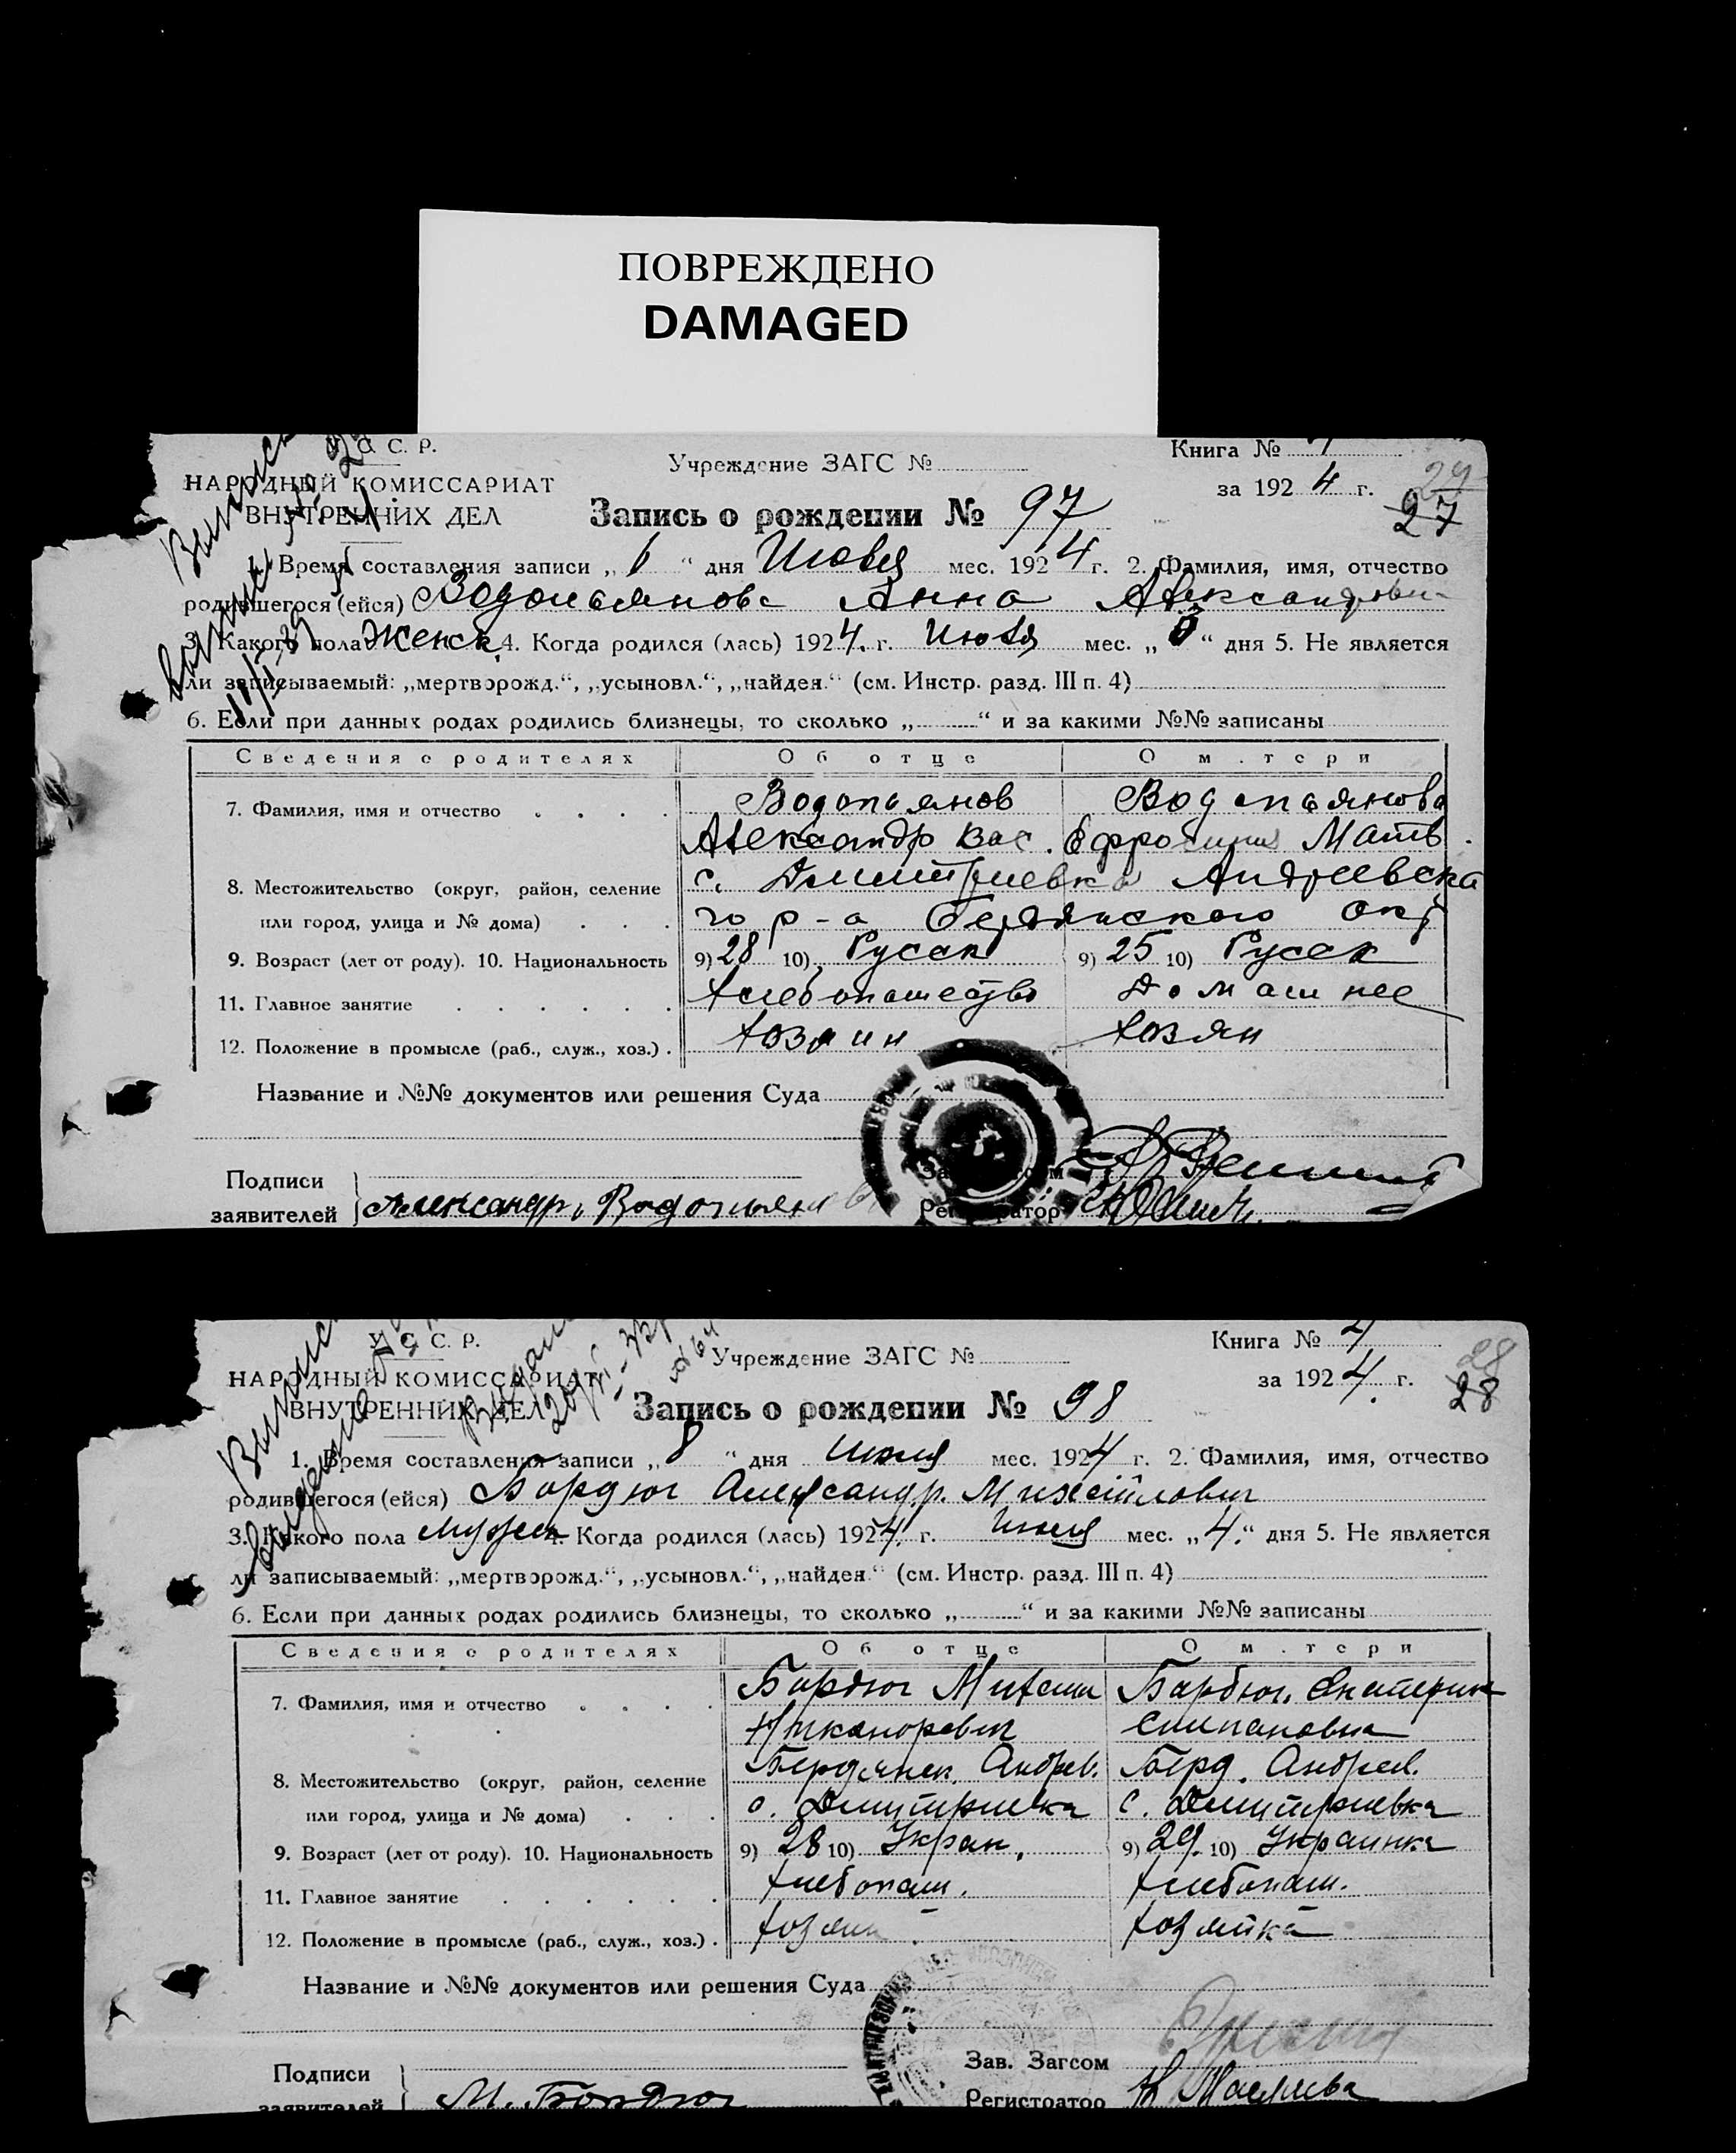 ПОВРЕЖДЕНО
DAMAGED
У С. С. Р.
Учреждение ЗАГС №
Книга №
НАРОДНЫЙ КОМИССАРИАТ
за 1924 г.
ВНУТРЕННИХ ДЕЛ
27
Запись о рождении № 97
1. Время составления записи „ 6 “ дня Июля мес. 1924 г. 2. Фамилия, имя, отчество
родившегося (ейся) Водопьянова Анна Александровн
3. Какого пола Женск 4. Когда родился (лась) 1924. г. Июля мес. „ “ дня 5. Не является
ли записываемый: „мертворожд.“, „усыновл.“, „найден.“ (см. Инстр. разд. III п. 4)
6. Если при данных родах родились близнецы, то сколько „ “ и за какими №№ записаны
Сведения о родителях Об отце О м.тери
7. Фамилия, имя и отчество Водопьянов Водопьянова
Александр Вас. Ефросиния Матв.
8. Местожительство (округ, район, селение с. Дмитриевка Андреевска
или город, улица и № дома) го р-а Бердянского окр
9. Возраст (лет от роду). 10. Национальность 9) 28 10) Русск 9) 25 10) Русск
11. Главное занятие Хлебопашество Домашнее
12. Положение в промысле (раб., служ., хоз.) Хозяин Хозян
Название и №№ документов или решения Суда
Подписи
заявителей Александр Водопьянов
Регистратор
У С. С. Р.
Учреждение ЗАГС №
Книга № 4
НАРОДНЫЙ КОМИССАРИАТ
за 1924. г.
28
28
ВНУТРЕННИХ ДЕЛ
Запись о рождении № 98
1. Время составления записи „ 8 “ дня июля мес. 1924 г. 2. Фамилия, имя, отчество
родившегося (ейся) Бардюг Александр. Михайлович
3. Какого пола мужск 4. Когда родился (лась) 1924. г. июля мес. „4.“ дня 5. Не является
ли записываемый: „мертворожд.“, „усыновл.“, „найден.“ (см. Инстр. разд. III п. 4)
6. Если при данных родах родились близнецы, то сколько „ “ и за какими №№ записаны
Сведения о родителях Об отце О м.тери
7. Фамилия, имя и отчество Бардюг Михаил Бардюг. Екатерин
Никанорович Степановна
8. Местожительство (округ, район, селение Бердянск. Андреев. Берд. Андреев.
или город, улица и № дома) с. Дмитриевка с. Дмитриевка
9. Возраст (лет от роду). 10. Национальность 9) 28 10) Украин. 9) 29. 10) Украинка
11. Главное занятие хлебопаш. хлебопаш.
12. Положение в промысле (раб., служ., хоз.) хозяин хозяйка
Название и №№ документов или решения Суда
Подписи
Зав. Загсом
заявителей М. Бардюг
Регистратор